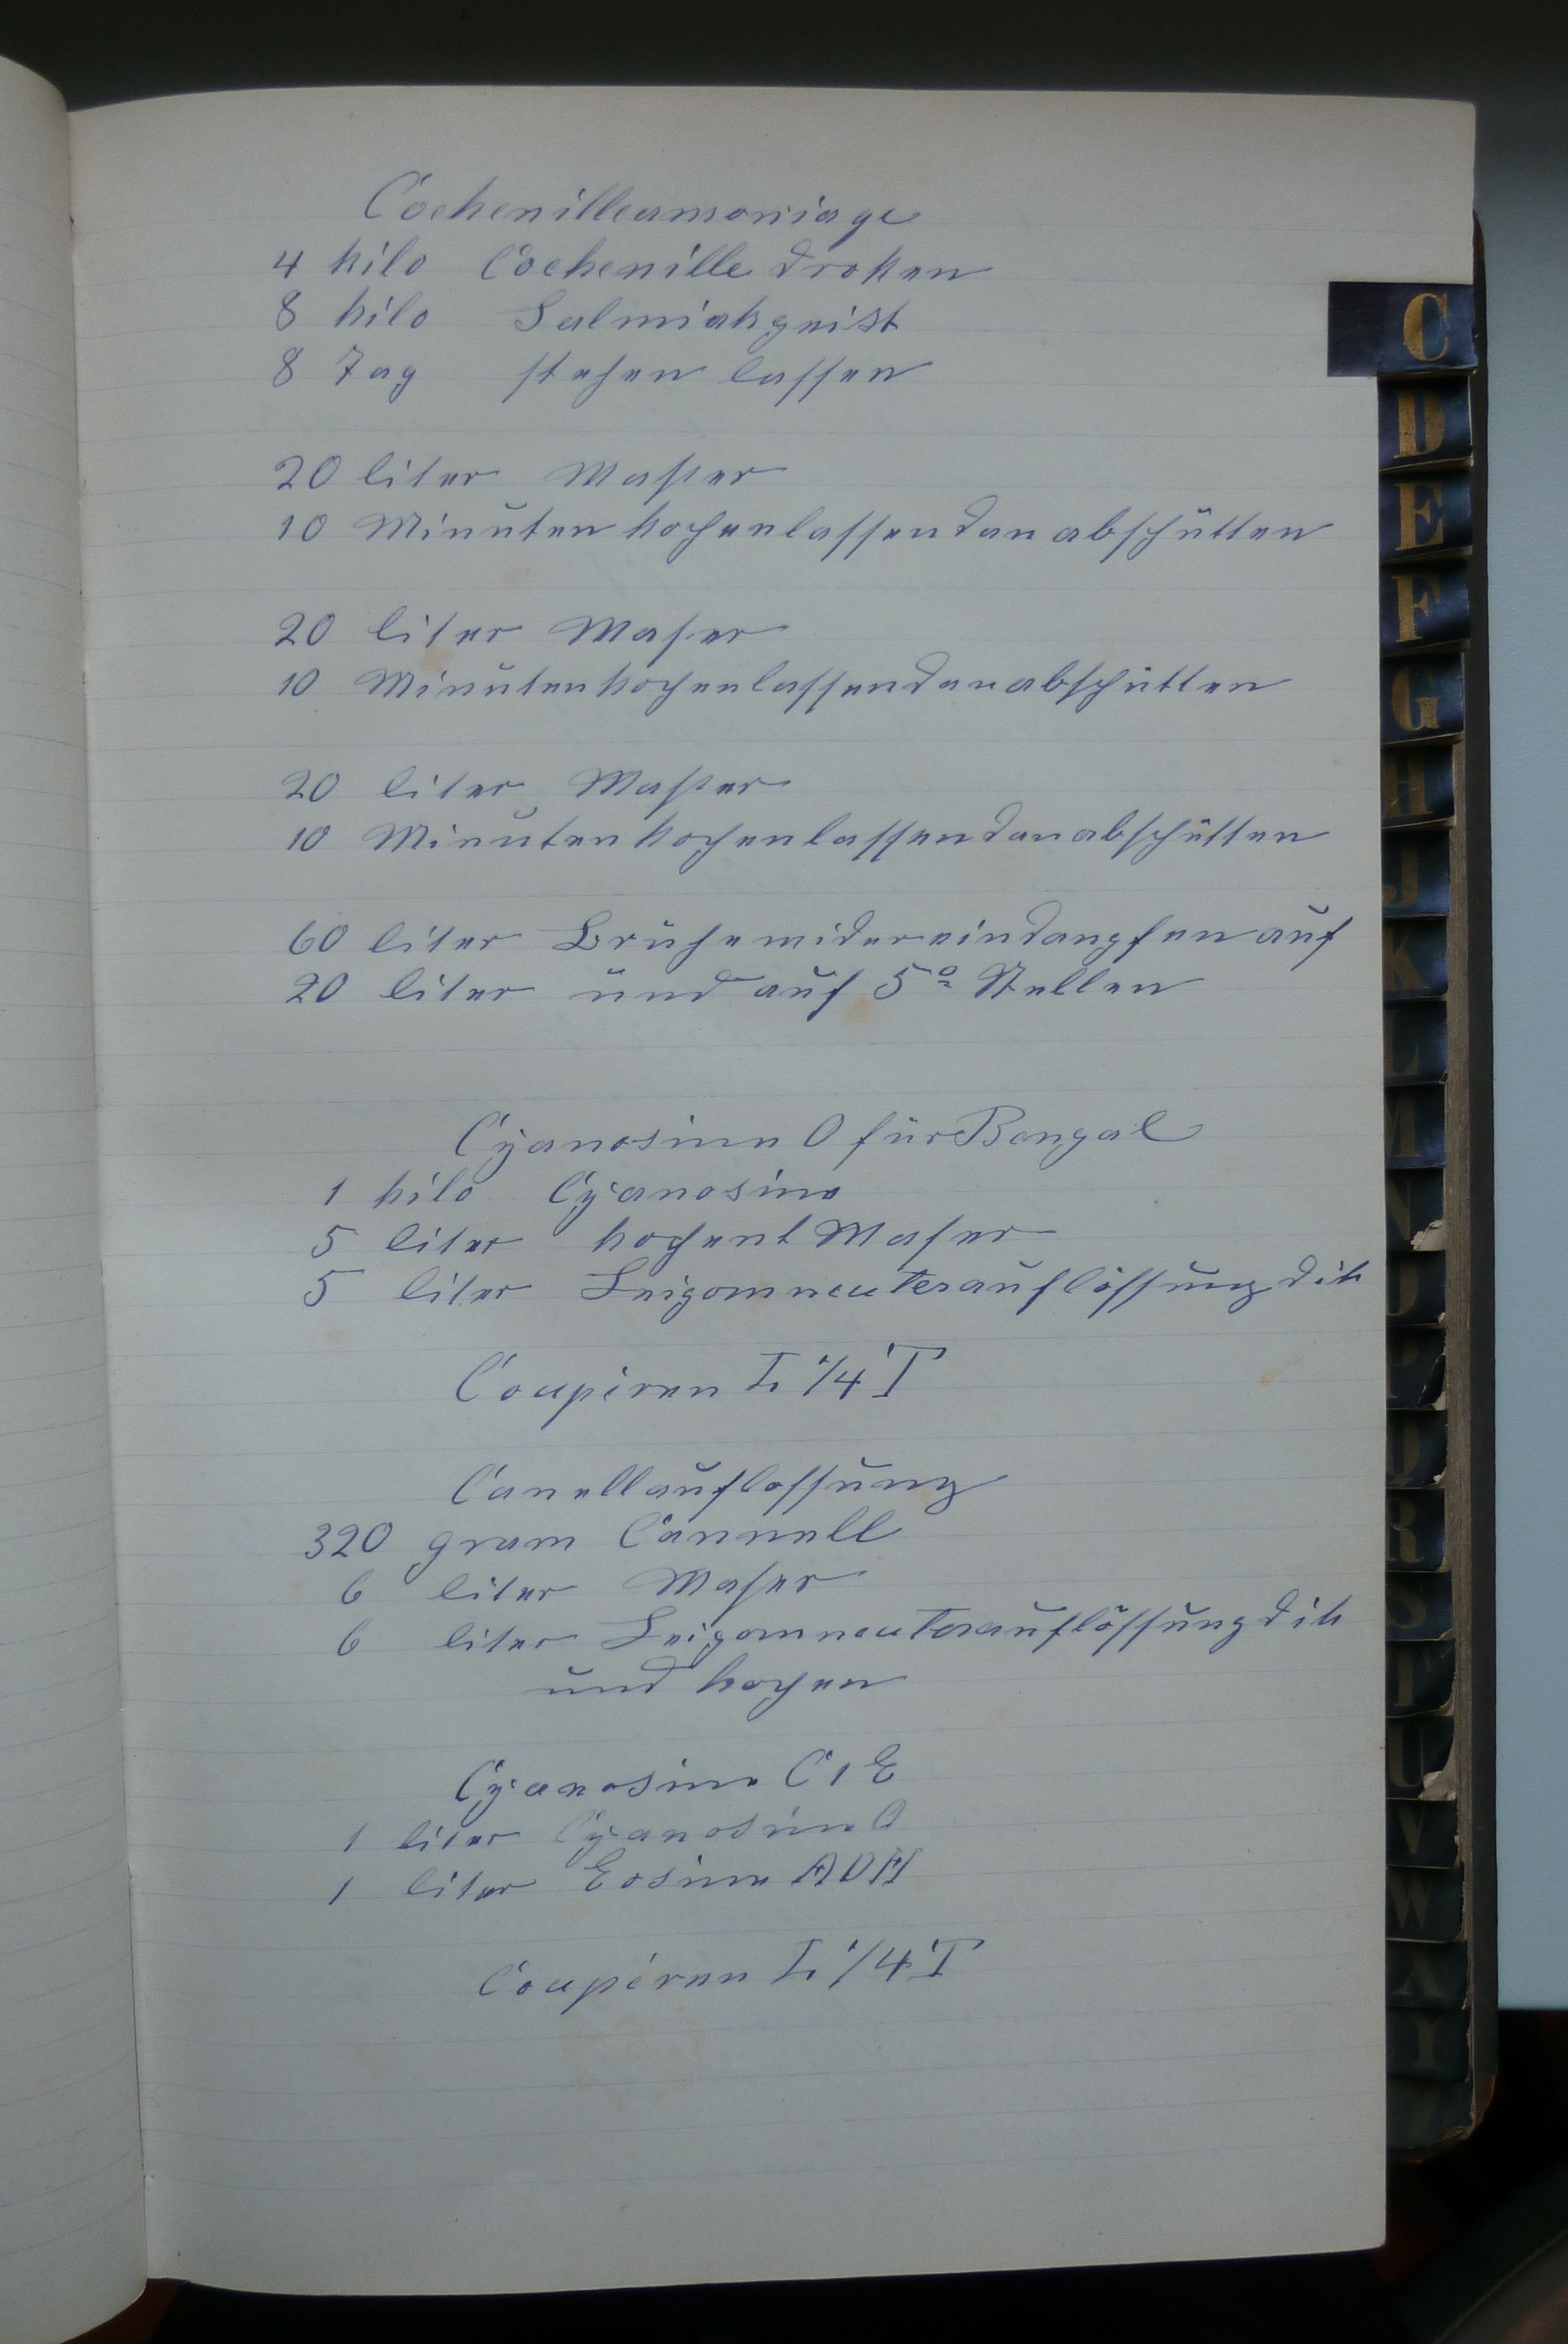 Cochenilleamoniage
4 kilo Cochenille droken
8 kilo Salmiakgeist
8 Tag stehen lassen
20 liter Wasser
10 Minuten kochenlassendan abschütten
20 liter Waser
10 Minutenkochenlassendanabschütten
20 liter Wasser
10 Minutenkochenlassendanabschütten
60 liter Brühewidereindampfen auf
20 liter und auf 5° Stellen
Cyanosine O für Bengal
1 kilo Cyanosine
5 liter kochent Waser
5 liter auflössung dik
Coupiren 1/4
Canellauflossung
320 gram Cannell
6 liter Waser
6 liter auflössung dik
und kochen
Cyanosine C 1 E
1 liter Cyanosine O
1 liter Eosine
Coupiren 1/4
C
D
E
F
G
H
J
K
L
M
N
O
P
Q
R
S
T
U
V
W
X